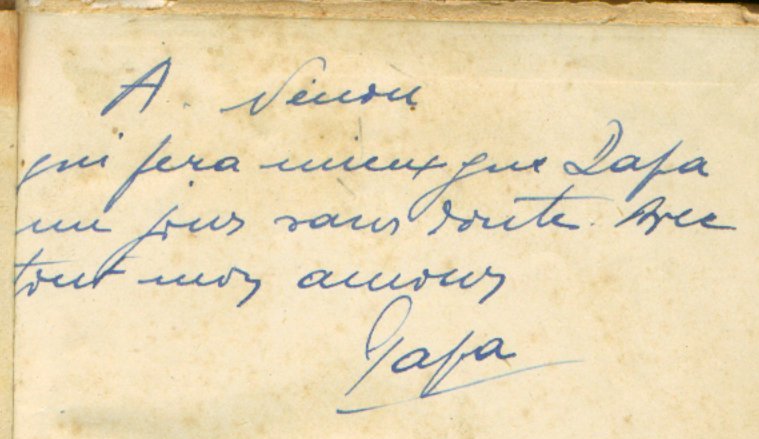 A. Ninou
qui fera mieux que Papa
un jour sans doute. Avec
tout mon amour
Papa